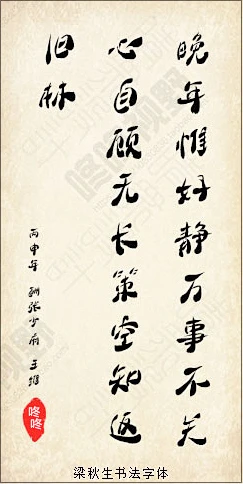 晚年惟好静万事不关
心自顾无长策空知返
旧林
丙申年 酬张少府 王维
咚咚
梁秋生书法字体